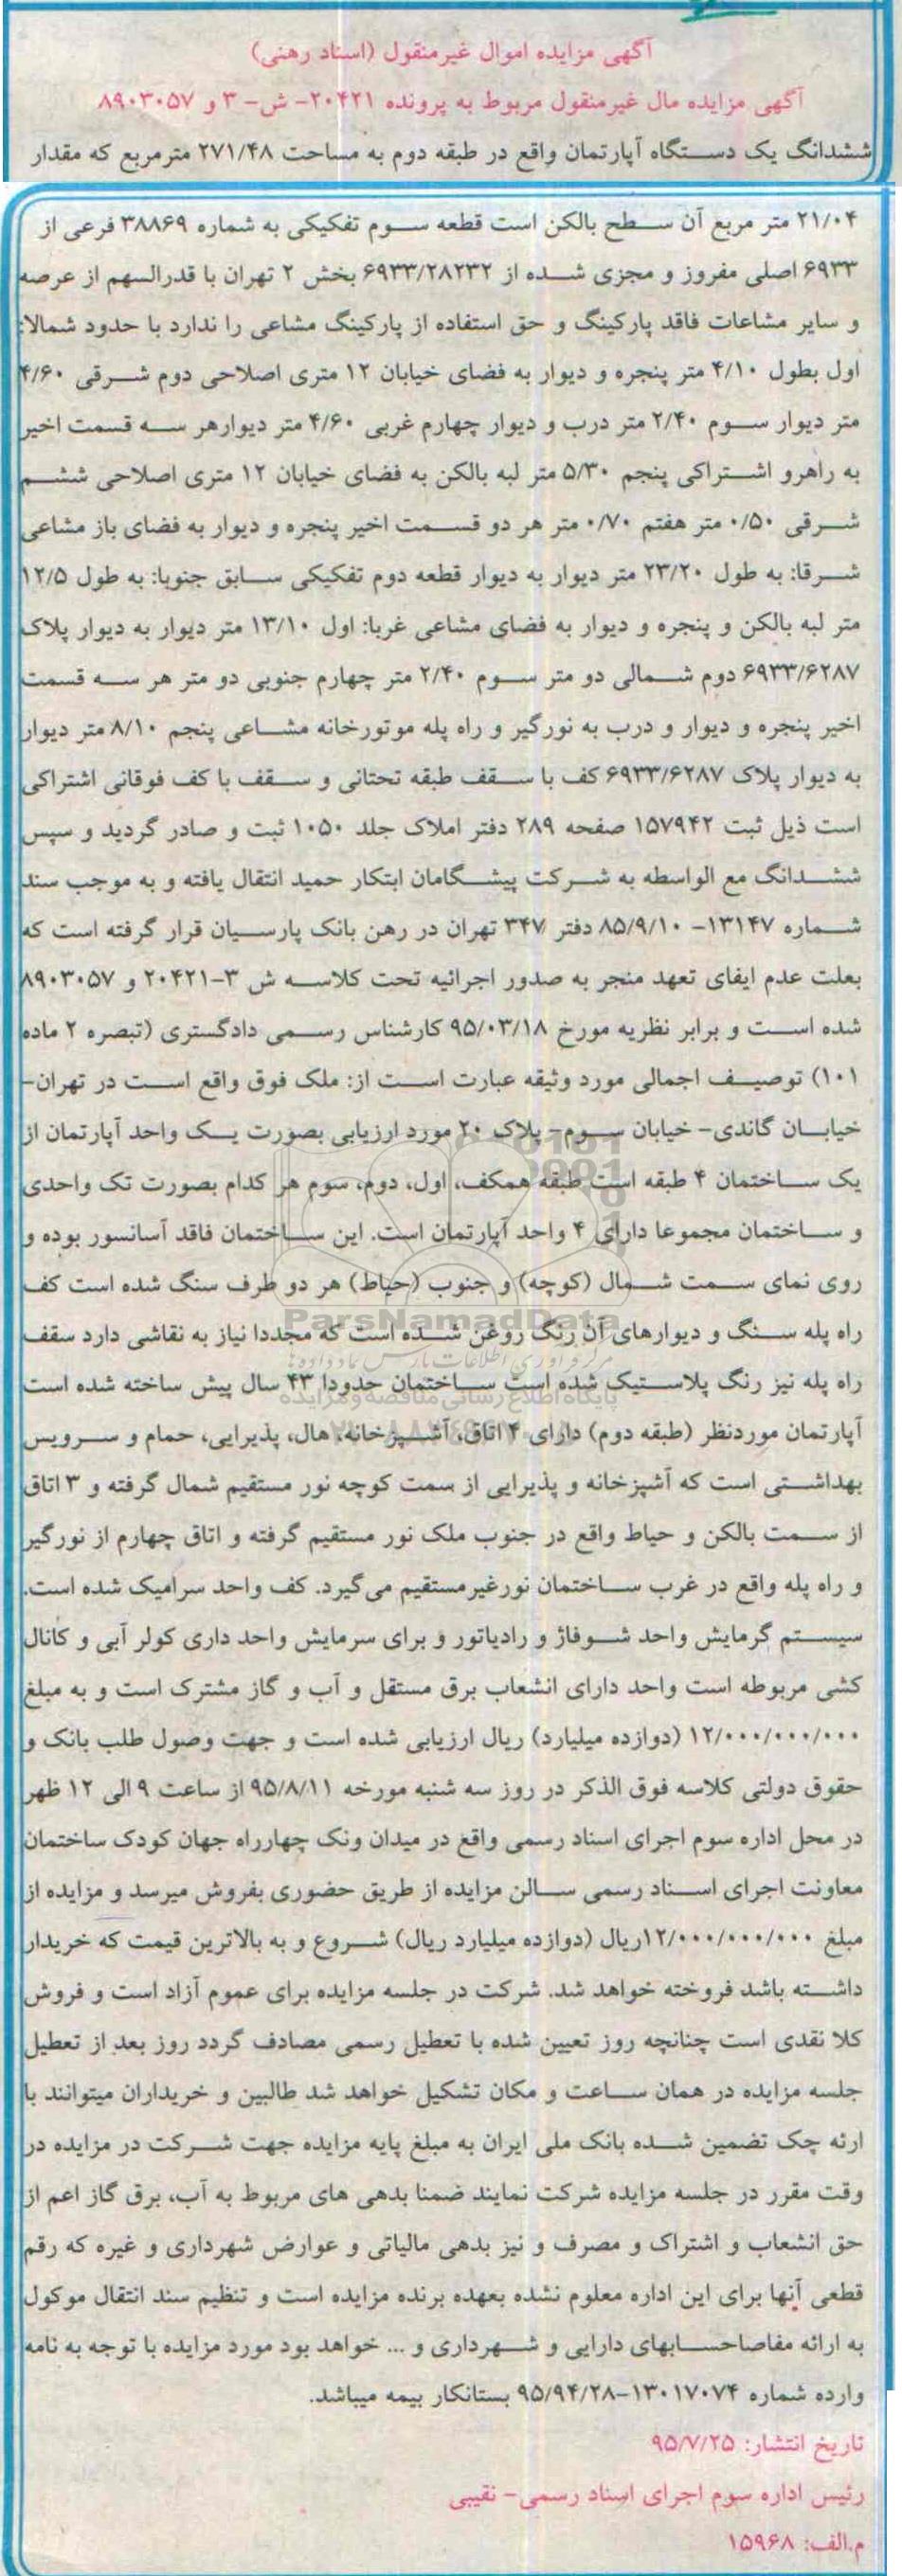 آگهی مزایده اموال غیرمنقول (اسناد رهنی)
آگهی مزایده مال غیرمنقول مربوط به پرونده ۲۰۴۲۱- ش- ۳ و ۸۹۰۳۰۵۷
ششدانگ یک دستگاه آپارتمان واقع در طبقه دوم به مساحت ۲۷۱/۴۸ مترمربع که مقدار
۲۱/۰۴ متر مربع آن سطح بالکن است قطعه سوم تفکیکی به شماره ۳۸۸۶۹ فرعی از
۶۹۳۳ اصلی مفروز و مجزی شده از ۶۹۳۳/۲۸۲۳۲ بخش ۲ تهران با قدرالسهم از عرصه
و سایر مشاعات فاقد پارکینگ و حق استفاده از پارکینگ مشاعی را ندارد با حدود شمالا:
اول بطول ۴/۱۰ متر پنجره و دیوار به فضای خیابان ۱۲ متری اصلاحی دوم شرقی ۴/۶۰
متر دیوار سوم ۲/۴۰ متر درب و دیوار چهارم غربی ۴/۶۰ متر دیوارهر سه قسمت اخیر
به راهرو اشتراکی پنجم ۵/۳۰ متر لبه بالکن به فضای خیابان ۱۲ متری اصلاحی ششم
شرقی ۰/۵۰ متر هفتم ۰/۷۰ متر هر دو قسمت اخیر پنجره و دیوار به فضای باز مشاعی
شرقا: به طول ۲۳/۲۰ متر دیوار به دیوار قطعه دوم تفکیکی سابق جنوبا: به طول ۱۲/۵
متر لبه بالکن و پنجره و دیوار به فضای مشاعی غربا: اول ۱۳/۱۰ متر دیوار به دیوار پلاک
۶۹۳۳/۶۲۸۷ دوم شمالی دو متر سوم ۲/۴۰ متر چهارم جنوبی دو متر هر سه قسمت
اخیر پنجره و دیوار و درب به نورگیر و راه پله موتورخانه مشاعی پنجم ۸/۱۰ متر دیوار
به دیوار پلاک ۶۹۳۳/۶۲۸۷ کف با سقف طبقه تحتانی و سقف با کف فوقانی اشتراکی
است ذیل ثبت ۱۵۷۹۴۲ صفحه ۲۸۹ دفتر املاک جلد ۱۰۵۰ ثبت و صادر گردید و سپس
ششدانگ مع الواسطه به شرکت پیشگامان ابتکار حمید انتقال یافته و به موجب سند
شماره ۱۳۱۴۷- ۸۵/۹/۱۰ دفتر ۳۴۷ تهران در رهن بانک پارسیان قرار گرفته است که
بعلت عدم ایفای تعهد منجر به صدور اجرائیه تحت کلاسه ش ۳-۲۰۴۲۱ و ۸۹۰۳۰۵۷
شده است و برابر نظریه مورخ ۹۵/۰۳/۱۸ کارشناس رسمی دادگستری (تبصره ۲ ماده
۱۰۱) توصیف اجمالی مورد وثیقه عبارت است از: ملک فوق واقع است در تهران-
خیابان گاندی- خیابان سوم- پلاک ۲۰ مورد ارزیابی بصورت یک واحد آپارتمان از
یک ساختمان ۴ طبقه است طبقه همکف، اول، دوم، سوم هر کدام بصورت تک واحدی
و ساختمان مجموعا دارای ۴ واحد آپارتمان است. این ساختمان فاقد آسانسور بوده و
روی نمای سمت شمال (کوچه) و جنوب (حیاط) هر دو طرف سنگ شده است کف
ParsNamadData
راه پله سنگ و دیوارهای آن رنگ روغن شده است که مجددا نیاز به نقاشی دارد سقف
مرکز فرآوری اطلاعات پارس نماد داده ها
راه پله نیز رنگ پلاستیک شده است ساختمان حدودا ۴۳ سال پیش ساخته شده است
پایگاه اطلاع رسانی مناقصه و مزایده
آپارتمان موردنظر (طبقه دوم) دارای ۴ اتاق، آشپزخانه، هال، پذیرایی، حمام و سرویس
بهداشتی است که آشپزخانه و پذیرایی از سمت کوچه نور مستقیم شمال گرفته و ۳ اتاق
از سمت بالکن و حیاط واقع در جنوب ملک نور مستقیم گرفته و اتاق چهارم از نورگیر
و راه پله واقع در غرب ساختمان نورغیرمستقیم می‌گیرد. کف واحد سرامیک شده است.
سیستم گرمایش واحد شوفاژ و رادیاتور و برای سرمایش واحد داری کولر آبی و کانال
کشی مربوطه است واحد دارای انشعاب برق مستقل و آب و گاز مشترک است و به مبلغ
۱۲/۰۰۰/۰۰۰/۰۰۰ (دوازده میلیارد) ریال ارزیابی شده است و جهت وصول طلب بانک و
حقوق دولتی کلاسه فوق الذکر در روز سه شنبه مورخه ۹۵/۸/۱۱ از ساعت ۹ الی ۱۲ ظهر
در محل اداره سوم اجرای اسناد رسمی واقع در میدان ونک چهارراه جهان کودک ساختمان
معاونت اجرای اسناد رسمی سالن مزایده از طریق حضوری بفروش میرسد و مزایده از
مبلغ ۱۲/۰۰۰/۰۰۰/۰۰۰ریال (دوازده میلیارد ریال) شروع و به بالاترین قیمت که خریدار
داشته باشد فروخته خواهد شد. شرکت در جلسه مزایده برای عموم آزاد است و فروش
کلا نقدی است چنانچه روز تعیین شده با تعطیل رسمی مصادف گردد روز بعد از تعطیل
جلسه مزایده در همان ساعت و مکان تشکیل خواهد شد طالبین و خریداران میتوانند با
ارئه چک تضمین شده بانک ملی ایران به مبلغ پایه مزایده جهت شرکت در مزایده در
وقت مقرر در جلسه مزایده شرکت نمایند ضمنا بدهی های مربوط به آب، برق گاز اعم از
حق انشعاب و اشتراک و مصرف و نیز بدهی مالیاتی و عوارض شهرداری و غیره که رقم
قطعی آنها برای این اداره معلوم نشده بعهده برنده مزایده است و تنظیم سند انتقال موکول
به ارائه مفاصاحسابهای دارایی و شهرداری و ... خواهد بود مورد مزایده با توجه به نامه
وارده شماره ۱۳۰۱۷۰۷۴-۹۵/۹۴/۲۸ بستانکار بیمه میباشد.
تاریخ انتشار: ۹۵/۷/۲۵
رئیس اداره سوم اجرای اسناد رسمی- نقیبی
م.الف: ۱۵۹۶۸